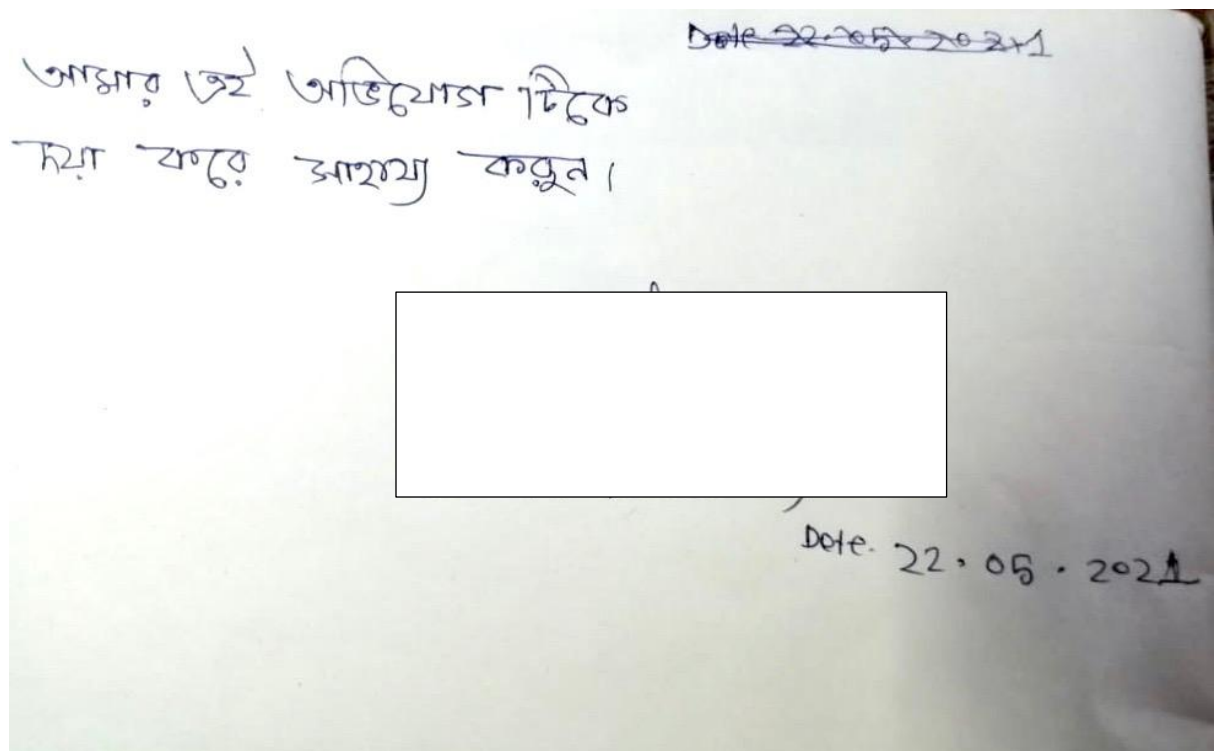 Date 22.05.2021
আমার এই অভিযোগ টিকে
দয়া করে সাহায্য করুন।
Date. 22.05.2021